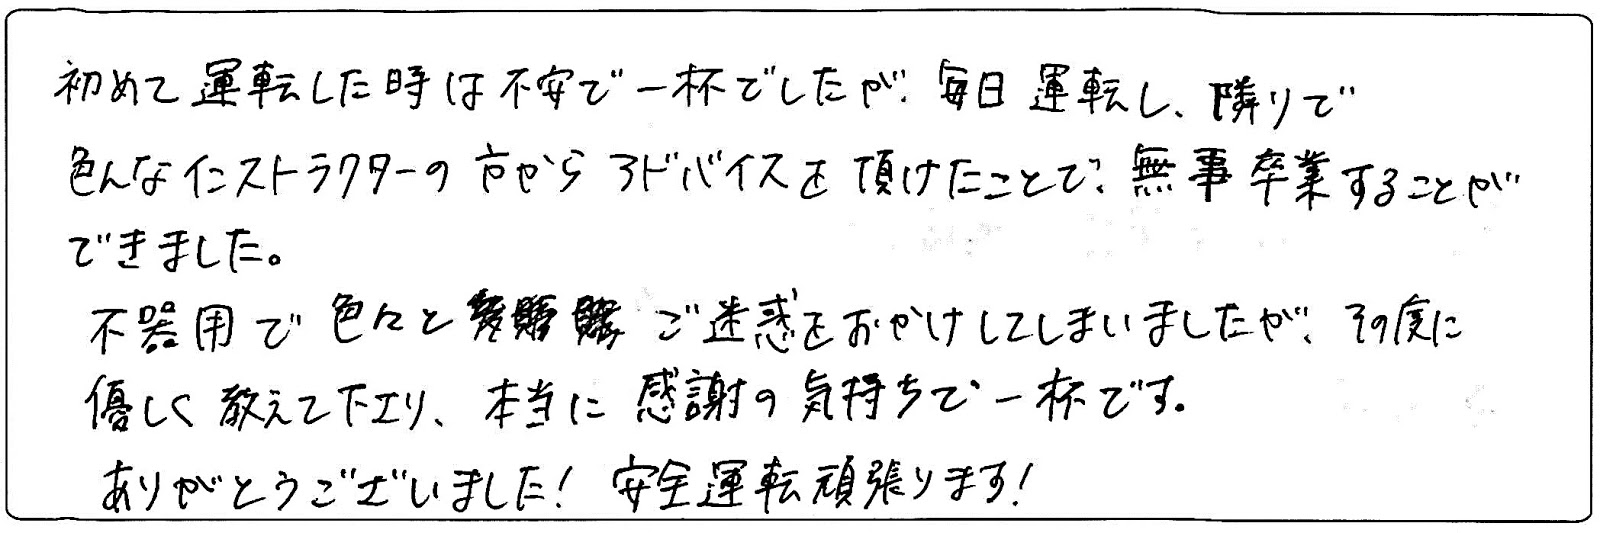 初めて運転した時は不安で一杯でしたが、毎日運転し、隣りで
色んなインストラクターの方からアドバイスを頂けたことで、無事卒業することが
できました。
不器用で色々と ご迷惑をおかけしてしまいましたが、その度に
優しく教えて下さり、本当に感謝の気持ちで一杯です。
ありがとうございました！安全運転頑張ります！